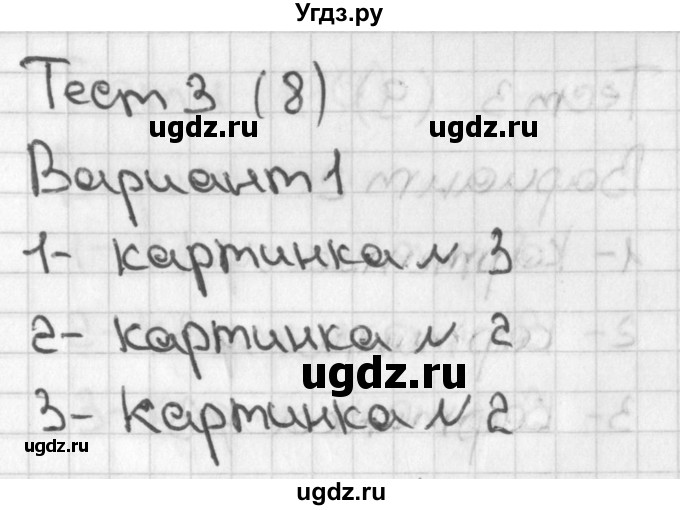 Угдз.ру
Тест 3 (8)
ugdz.ru ugdz.ru
Вариант 1
1- картинка № 3
2- картинка № 2
ugdz.ru
3- картинка № 2
ugdz.ru
ugdz.ru